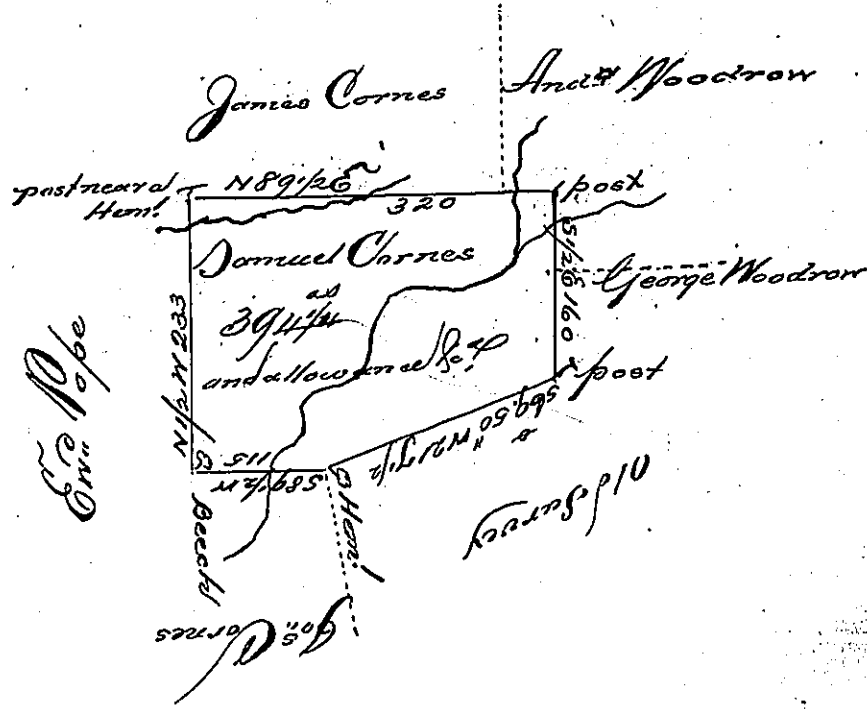 James Cornes
And.w Woodrow
post near a
Hem!
N 89 1/2 E
320
post
Samuel Cornes
394 1/4 as
and allowance &c.
S 1/2 E 160
George Woodrow
post
N 1/2 W 233
Pope
S 69.50 W 217 1/2
S 89 1/2 W
115
Beech
Hem!
Old Survey
Jos. Cornes